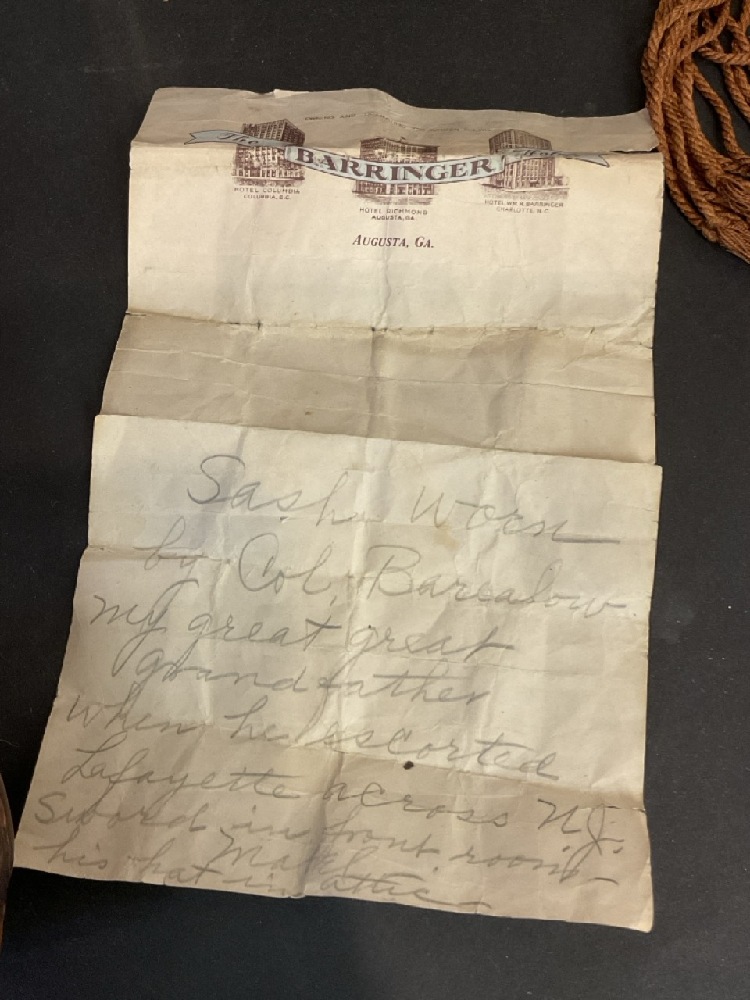 The BARRINGER
HOTEL COLUMBIA
COLUMBIA, S.C.
HOTEL RICHMOND
AUGUSTA, GA.
HOTEL WM R. BARRINGER
CHARLOTTE, N.C.
AUGUSTA, GA.
Sash Worn
by Col. Barcalow
my great great
grandfather
when he escorted
Lafayette across N.J.
Sword in front room
his hat in attic